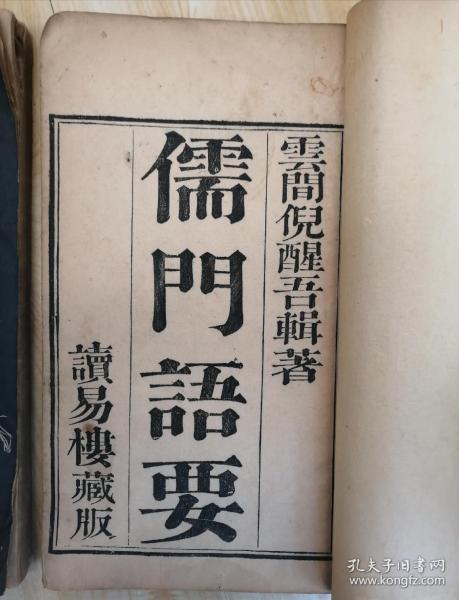 雲間倪醒吾輯著
儒門語要
讀易樓藏版
孔夫子旧书网